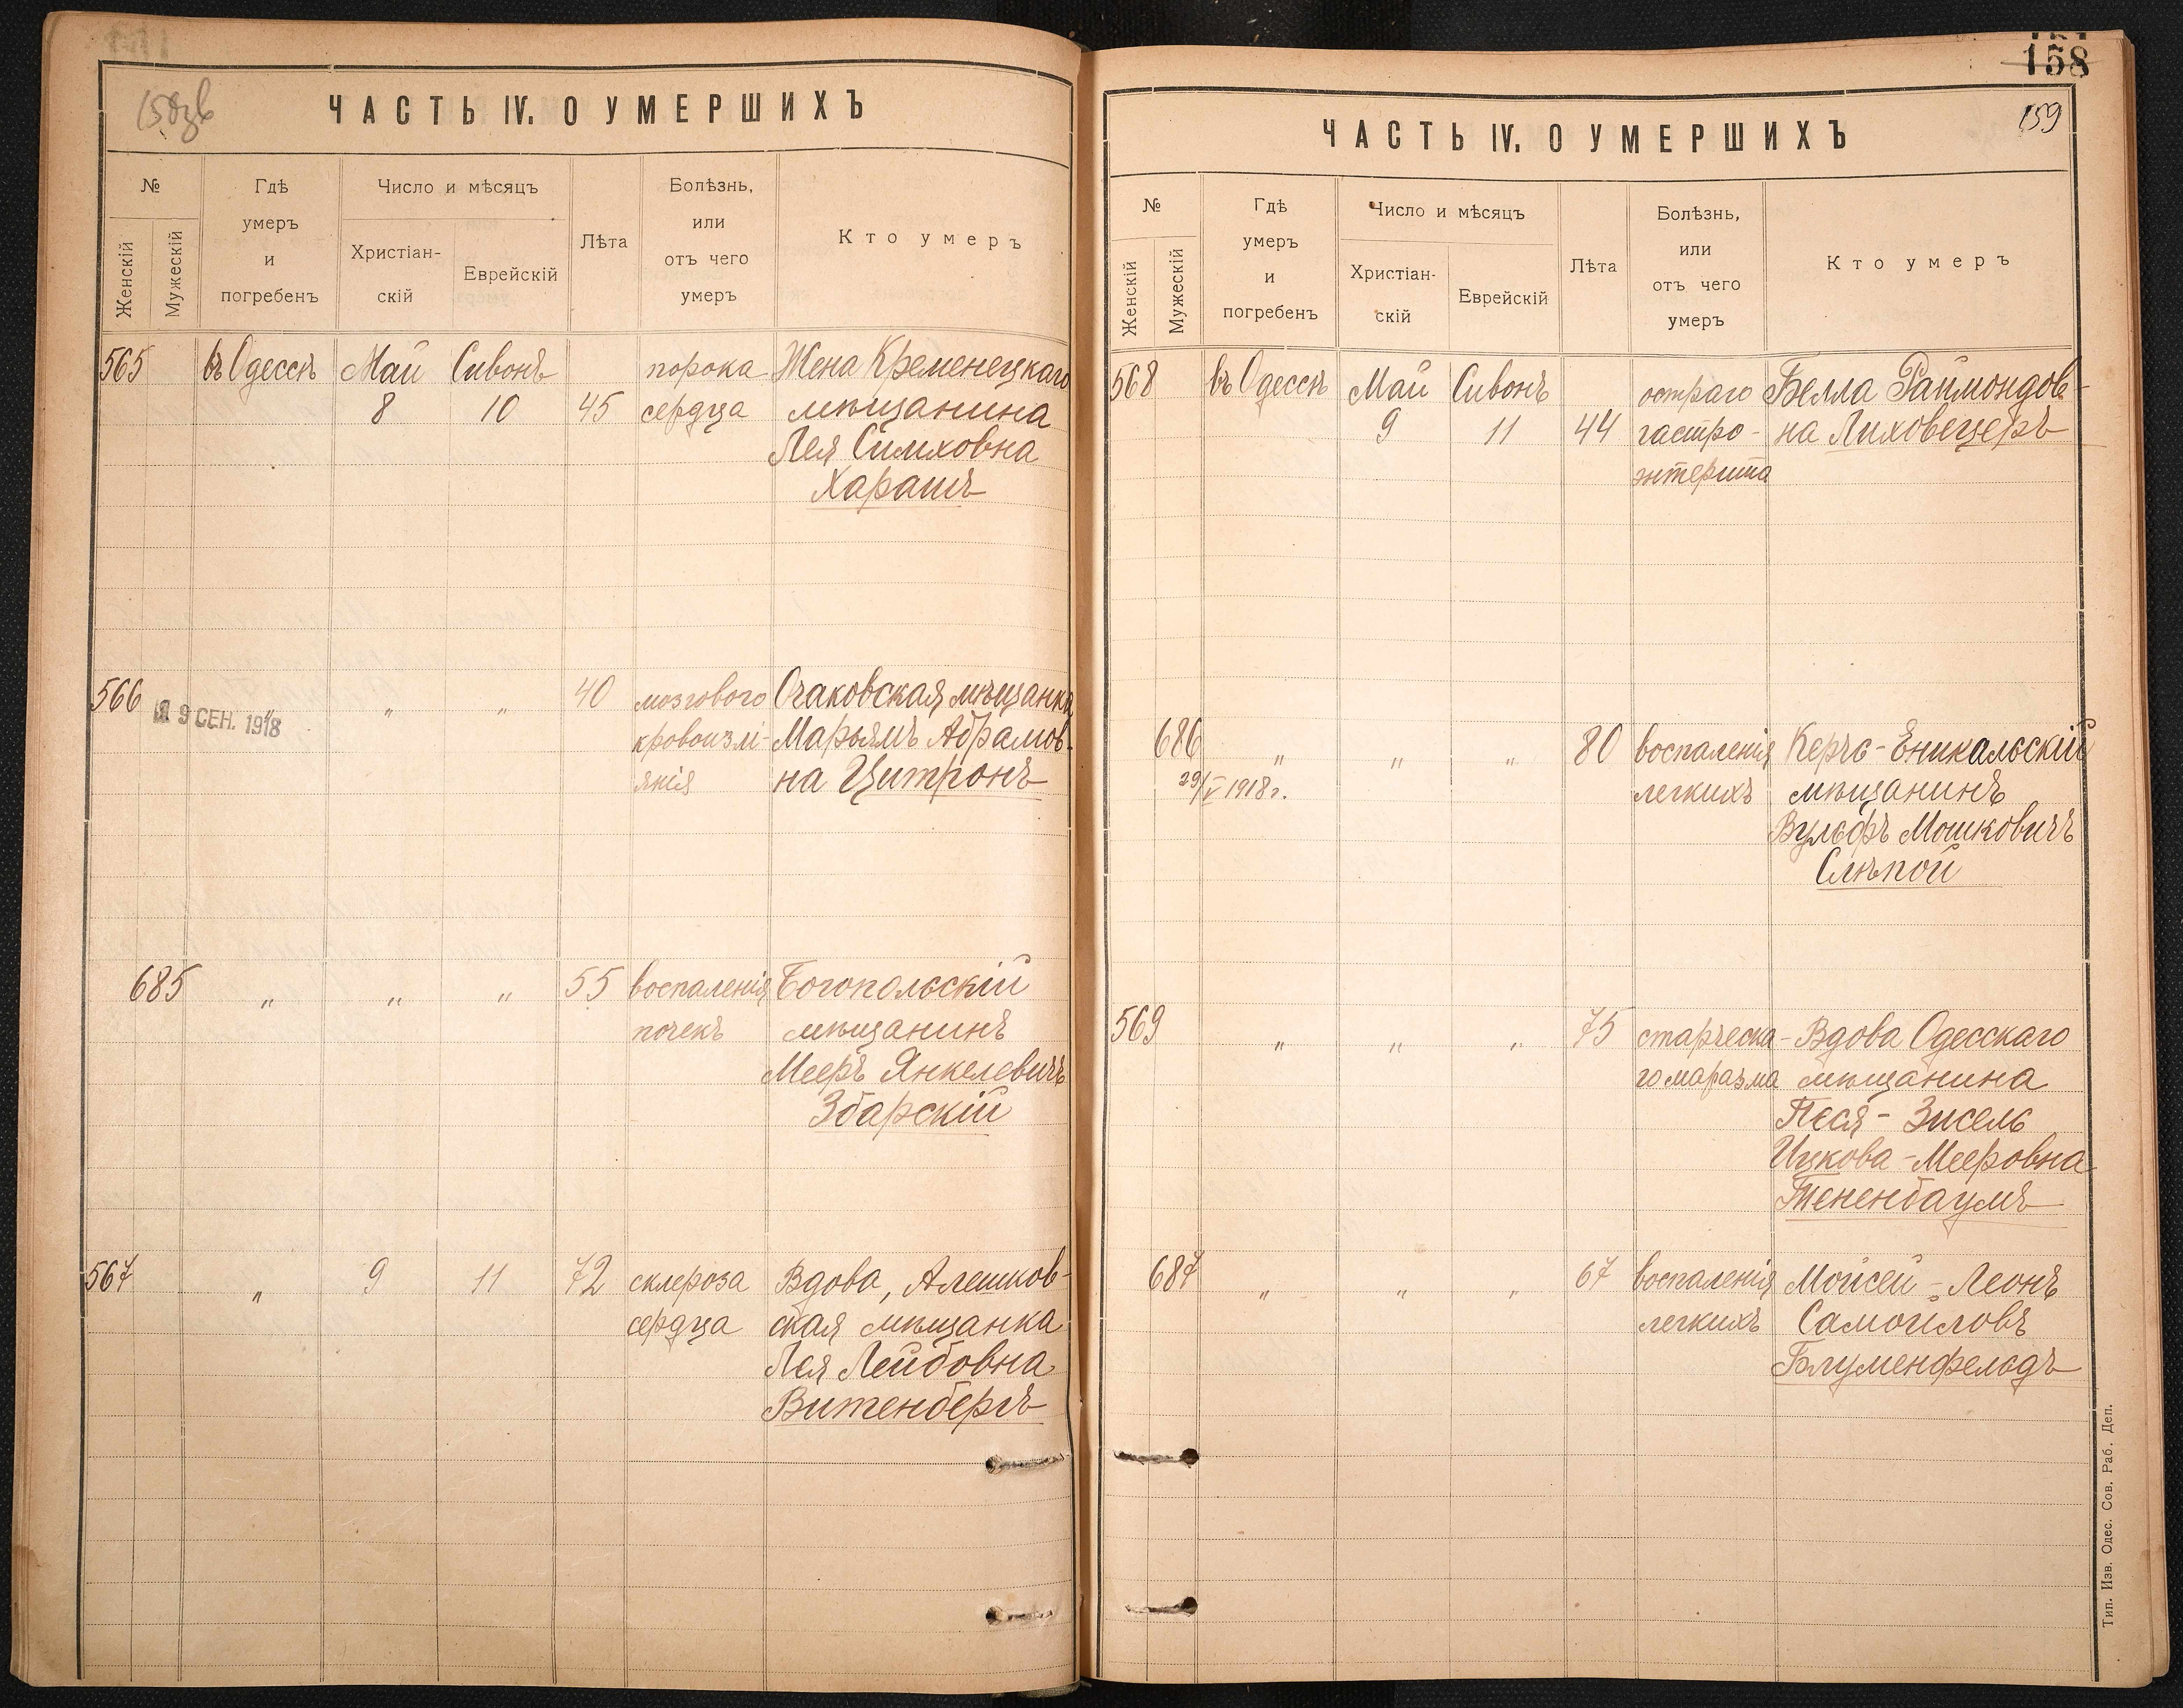 158зв
ЧАСТЬ IV. О УМЕРШИХЪ
№
Женскій
Мужескій
Гдѣ
умеръ
и
погребенъ
Число и мѣсяцъ
Христіан-
скій
Еврейскій
Лѣта
Болѣзнь,
или
отъ чего
умеръ
Кто умеръ
565 въ Одессѣ Май Сивонъ порока Жена Кременецкаго
8 10 45 сердца мѣщанина
Лея Симховна
Харашъ
566 „ „ „ 40 мозгового Очаковская мѣщанка
19 СЕН. 1918
кровоизлі- Марьямъ Абрамов-
янія на Цитронъ
685 „ „ „ 55 воспаленія Богопольскій
почекъ мѣщанинъ
Мееръ Янкелевичъ
Збарскій
567 „ 9 11 72 склероза Вдова, Алешков-
сердца ская мѣщанка
Лея Лейбовна
Витенбергъ
158
159
ЧАСТЬ IV. О УМЕРШИХЪ
№
Женскій
Мужескій
Гдѣ
умеръ
и
погребенъ
Число и мѣсяцъ
Христіан-
скій
Еврейскій
Лѣта
Болѣзнь,
или
отъ чего
умеръ
Кто умеръ
568 въ Одессѣ Май Сивонъ остраго Белла Раймондов-
9 11 44 гастро- на Лиховецеръ
энтерита
686 „ „ „ 80 воспаленія Керчь-Еникальскій
29/V 1918 г. легкихъ мѣщанинъ
Вульфъ Мошковичъ
Слѣпой
569 „ „ „ 75 старческа- Вдова Одесскаго
го маразма мѣщанина
Песя-Зисель
Ицкова-Мееровна
Тененбаумъ
687 „ „ „ 67 воспаленія Мойсей-Леонъ
легкихъ Самойловъ
Блуменфельдъ
Тип. Изв. Одес. Сов. Раб. Деп.